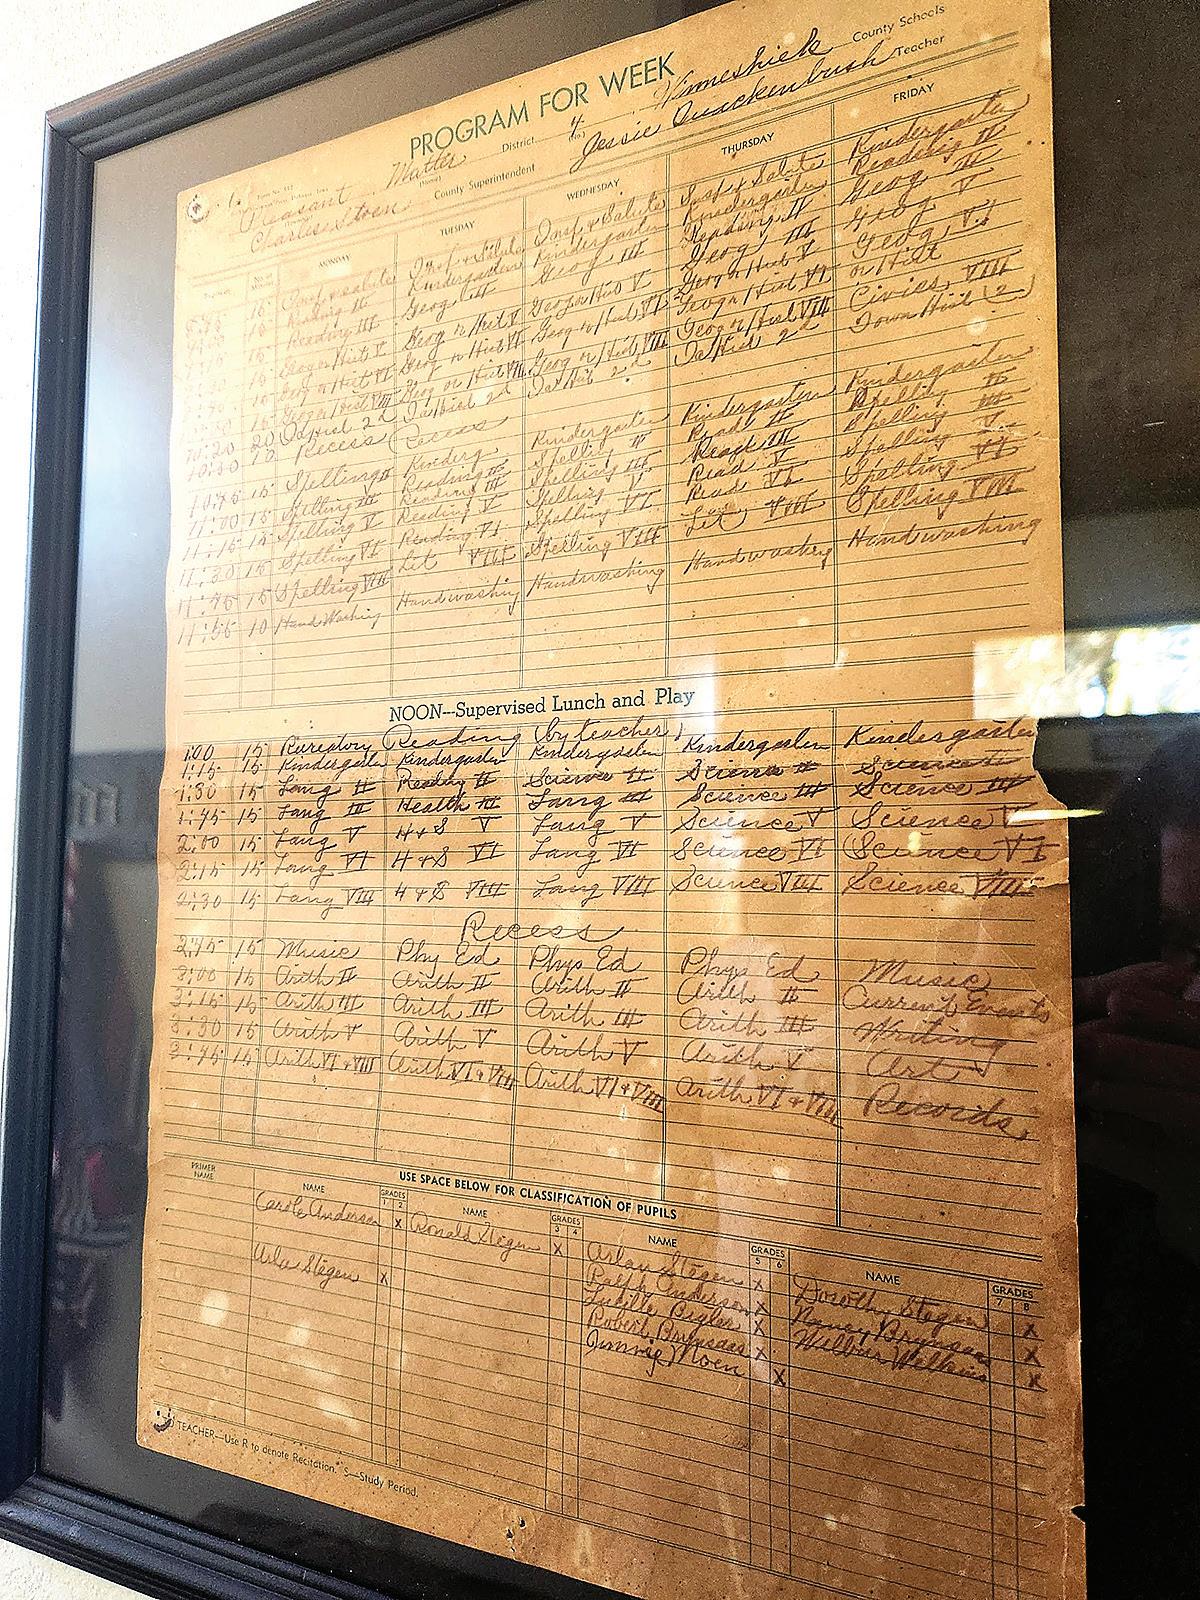 PROGRAM FOR WEEK
Winneshiek County Schools
Pleasant Mutter District 4
(Name) (No.)
Charles Stoen County Superintendent Jessie Quackenbush Teacher
MONDAY TUESDAY WEDNESDAY THURSDAY FRIDAY
Insp. & Salute Insp & Salute Kindergarten
Reading II Kindergarten Kindergarten Kindergarten Reading II
Reading III Geog III Geog III Reading II Geog III
Geog or Hist V Geog or Hist V Geog or Hist V Geog III Geog V
Geog or Hist VI Geog or Hist VI Geog or Hist VI Geog or Hist V Geog VI
Geog or Hist VIII Geog or Hist VIII Geog or Hist VIII Geog or Hist VI or Hist
Geog or Hist VIII Civics VIII
10:20 20 Ia Hist 22 Ia Hist 22 Ia Hist 22
10:30 10 Recess Recess
10:45 15 Spelling II Kinderg Kindergarten Kindergarten Kindergarten
11:00 15 Spelling III Reading II Spelling II Read II Spelling II
11:15 15 Spelling V Reading III Spelling III Read III Spelling III
11:30 15 Spelling VI Reading V Spelling V Read V Spelling V
Reading VI Spelling VI Read VI Spelling VI
11:45 15 Spelling VIII Lit VIII Spelling VIII Lit VIII Spelling VIII
11:55 10 Hand Washing Handwashing Handwashing Handwashing Handwashing
NOON—Supervised Lunch and Play
1:00 15 Recreatory Reading (by teacher)
1:15 15 Kindergarten Kindergarten Kindergarten Kindergarten Kindergarten
1:30 15 Lang II Reading II Science II Science II Science II
1:45 15 Lang III Health III Lang III Science III Science III
2:00 15 Lang V H & S V Lang V Science V Science V
2:15 15 Lang VI H & S VI Lang VI Science VI Science VI
2:30 15 Lang VIII H & S VIII Lang VIII Science VIII Science VIII
Recess
2:45 15 Music Phy Ed Phys Ed Phys Ed Music
3:00 15 Arith II Arith II Arith II Arith II Current Events
3:15 15 Arith III Arith III Arith III Arith III Writing
3:30 15 Arith V Arith V Arith V Arith V Art
3:45 15 Arith VI & VIII Arith VI & VIII Arith VI & VIII Arith VI & VIII Records
USE SPACE BELOW FOR CLASSIFICATION OF PUPILS
PRIMER NAME NAME GRADES 1 2 NAME GRADES 3 4 NAME GRADES 5 6 NAME GRADES 7 8
Carole Anderson x Ronald Stegen x Arlan Stegen x Dorothy Stegen x
Ralph Anderson x Nancy Brynsaas x
Arla Stegen x Lucille Bigler x Wilbur Wilkins x
Robert Brynsaas x
Jimmie Moen x
TEACHER—Use R to denote Recitation. S—Study Period.